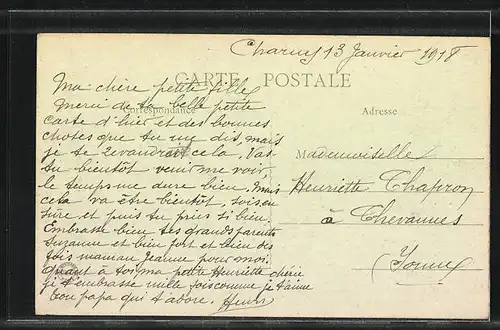 Charny 13 Janvier 1918
CARTE POSTALE
Correspondance
Adresse
Ma chère petite fille
Merci de ta belle petite
carte d'hier et des bonnes
choses que tu me dis, mais
je te revaudrai cela. Vas-
tu bientôt venir me voir,
le temps me dure bien. Mais
cela va être bientôt, sois en
sûre et puis tu pries si bien.
Embrasse bien tes grands parents
Suzanne et bien fort et bien des
fois maman Jeanne pour moi.
Quant à toi ma petite Henriette chérie
je t'embrasse mille fois comme je t'aime
Ton papa qui t'adore. Henri
Mademoiselle
Henriette Chapron
à Chevannes
(Yonne)